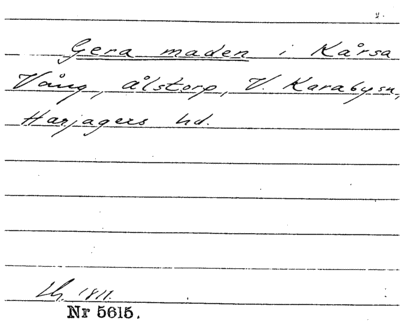 2.
Gera maden i Kårsa
Vång, ålstorp, V. Karabysn,
Harjagers hd.
1811.
Nr 5615.